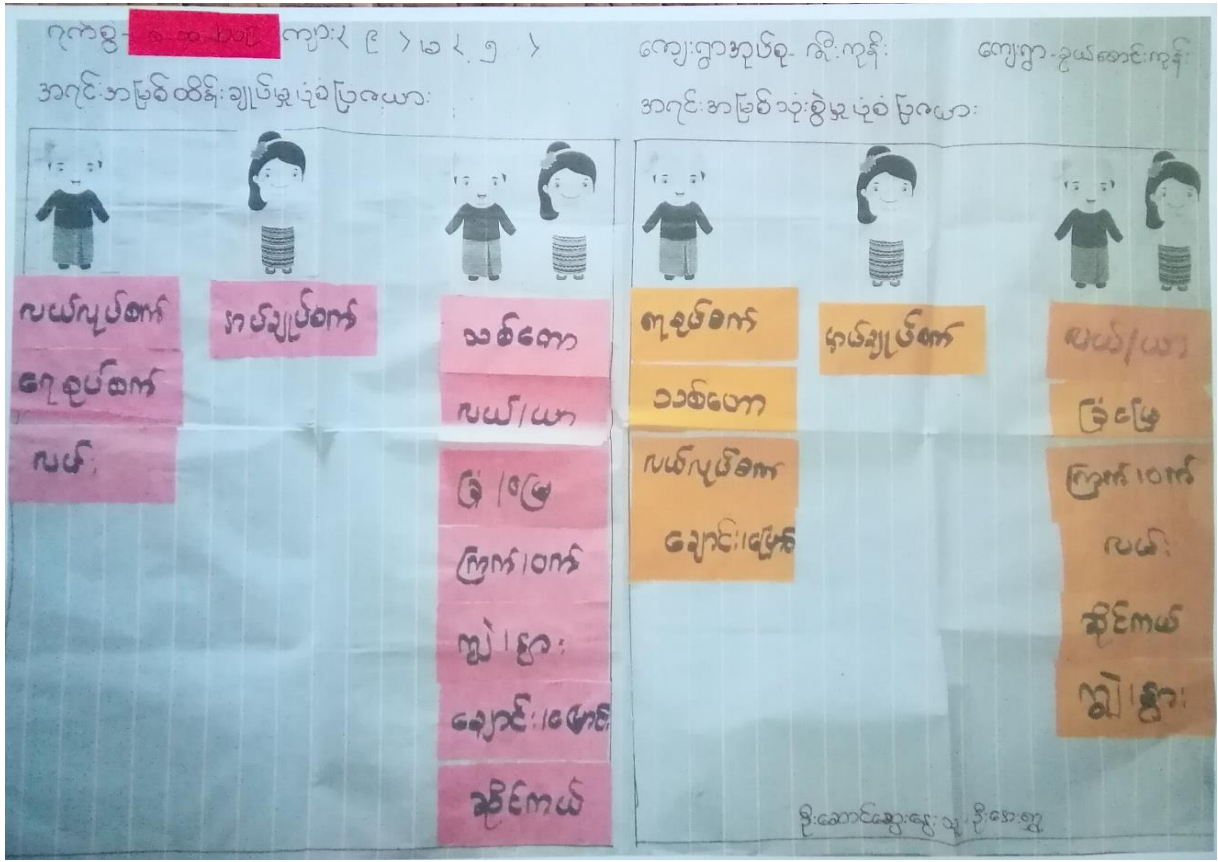 ရက်စွဲ- ကျား< ၉ >မ< ၅ >
ကျေးရွာအုပ်စု- ကျေးရွာ-
အရင်းအမြစ်ထိန်းချုပ်မှုပုံစံပြဇယား
အရင်းအမြစ်သုံးစွဲမှုပုံစံပြဇယား
လယ်လုပ်စက်
ရေစုပ်စက်
လမ်း
အပ်ချုပ်စက်
သစ်တော
လယ်/ယာ
ခြံ/မြေ
ကြက်/ဝက်
ကျွဲ/နွား
ချောင်း/မြောင်း
ဆိုင်ကယ်
ရေစုပ်စက်
သစ်တော
လယ်လုပ်စက်
ချောင်း/မြောင်း
အပ်ချုပ်စက်
လယ်/ယာ
ခြံမြေ
ကြက်/ဝက်
လမ်း
ဆိုင်ကယ်
ကျွဲ/နွား
ဦးဆောင်ဆွေးနွေးသူ-